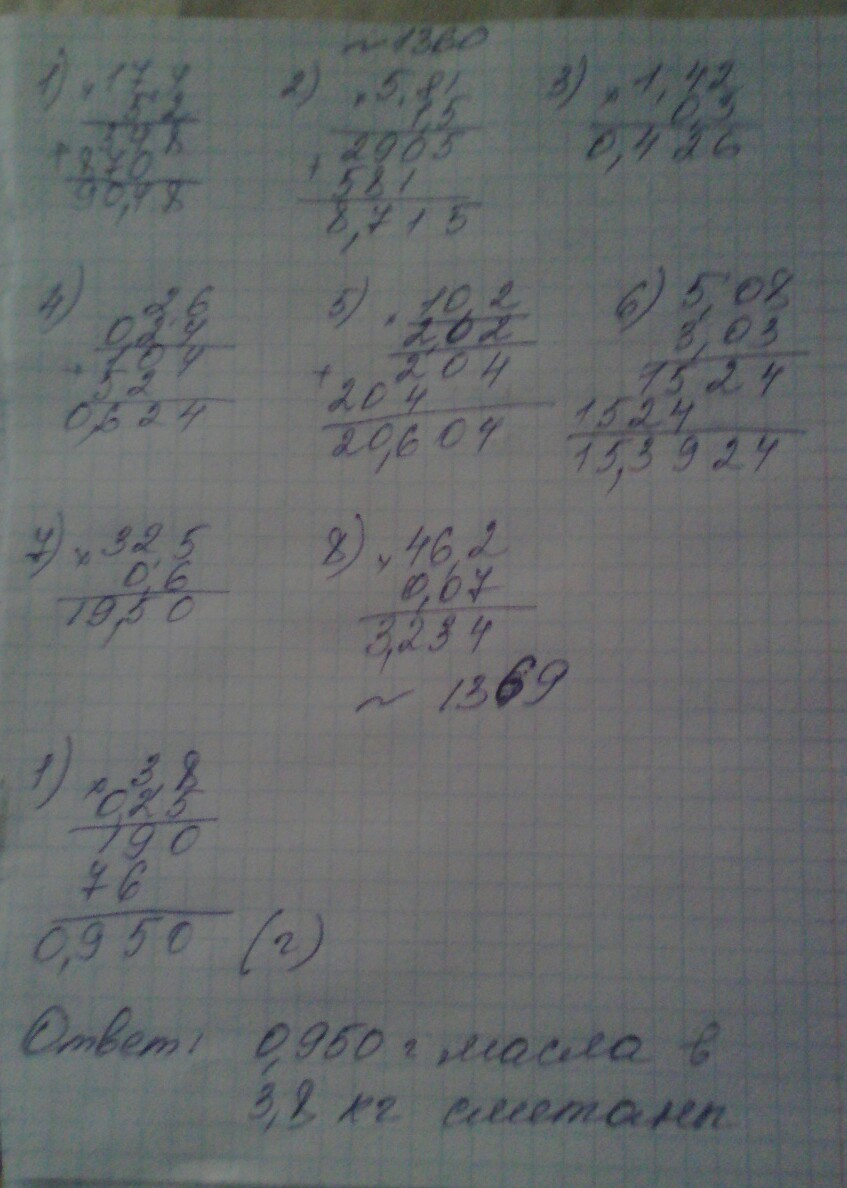 ~ 1360
1) × 17,4
5,2
+ 348
870
90,48
2) × 5,81
1,5
2905
+ 581
8,715
3) × 1,42
0,3
0,426
4) 2,6
0,24
+ 104
52
0,624
5) × 10,2
2,02
+ 204
204
20,604
6) 5,08
3,03
1524
1524
15,3924
7) × 32,5
0,6
19,50
8) × 46,2
0,07
3,234
~ 1369
1) × 3,8
0,25
190
76
0,950 (г)
Ответ: 0,950 г масла в
3,8 кг сметаны